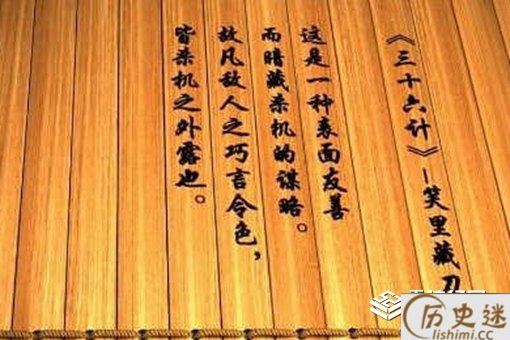 《三十六计》—笑里藏刀
这是一种表面友善
而暗藏杀机的谋略。
故凡敌人之巧言令色，
皆杀机之外露也。
历史迷
lishimi.cc